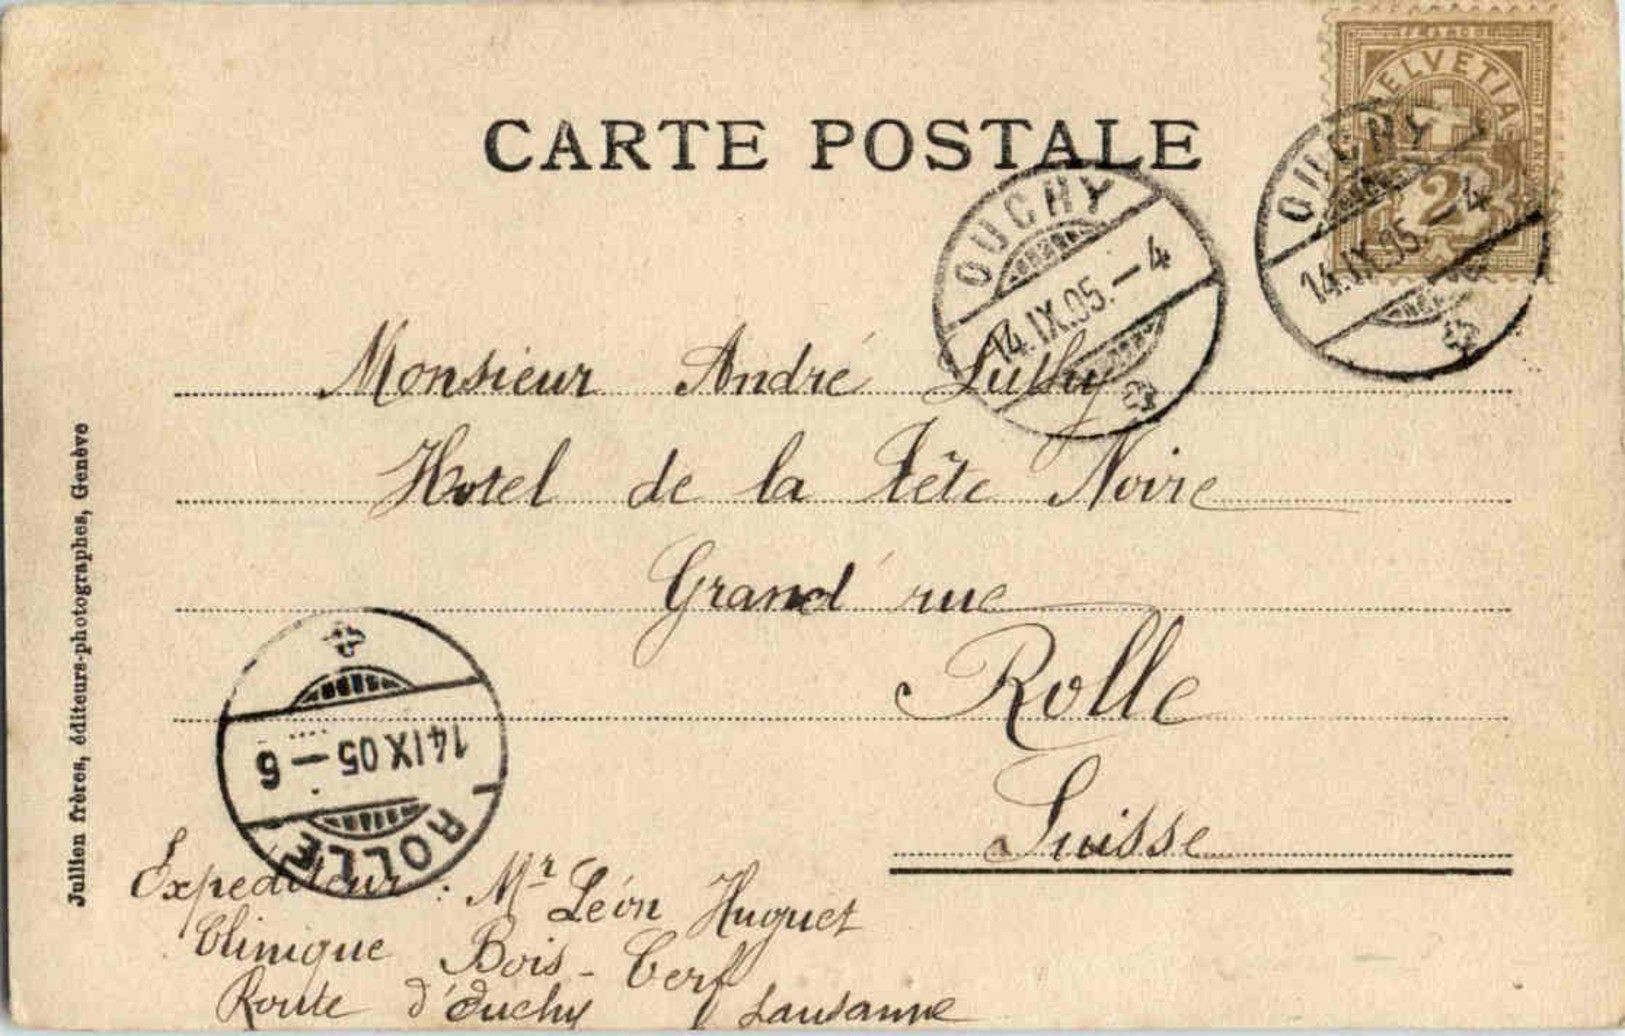 CARTE POSTALE
FRANCO
HELVETIA
2
OUCHY
14.IX.05.–4
OUCHY
14.IX.05.–4
Monsieur André Luthy
Hotel de la Tête Noire
Grand rue
Rolle
Suisse
14 IX 05–6
ROLLE
Expediteur : Mr Léon Huguet
Clinique Bois-Cerf
Route d'Ouchy Lausanne
Jullien frères, édditeurs-photographes, Genève